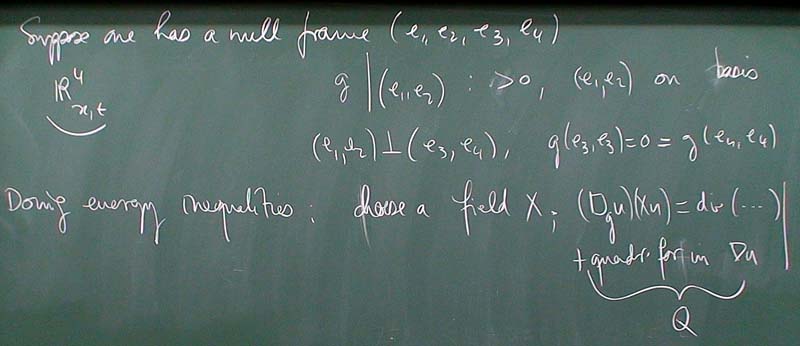 Suppose one has a null frame (e₁, e₂, e₃, e₄)
ℝ⁴ₓ,ₜ
g |(e₁, e₂) : >0, (e₁, e₂) on basis
(e₁, e₂) ⊥ (e₃, e₄), g(e₃, e₃) = 0 = g(e₄, e₄)
Doing energy inequalities: choose a field X; (□_g u)(Xu) = div(...)
+ quadr. for in Du
Q